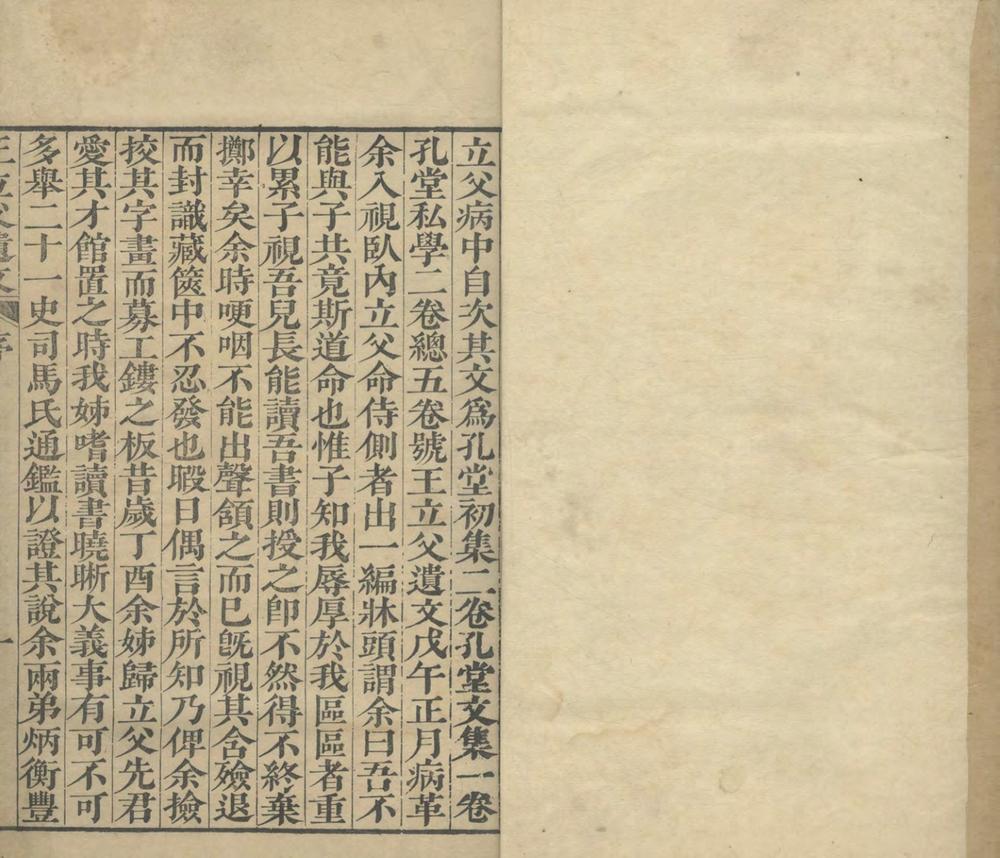 立父病中自次其文爲孔堂初集二卷孔堂文集一卷
孔堂私學二卷總五卷號王立父遺文戊午正月病革
余入視臥內立父命侍側者出一編牀頭謂余曰吾不
能與子共竟斯道命也惟子知我辱厚於我區區者重
以累子視吾兒長能讀吾書則授之卽不然得不終棄
擲幸矣余時哽咽不能出聲頷之而已旣視其含殮退
而封識藏篋中不忍發也暇日偶言於所知乃俾余撿
挍其字畫而募工鏤之板昔歲丁酉余姊歸立父先君
愛其才館置之時我姊嗜讀書曉晰大義事有可不可
多舉二十一史司馬氏通鑑以證其說余兩弟炳衡豐
王立父遺文 序 一